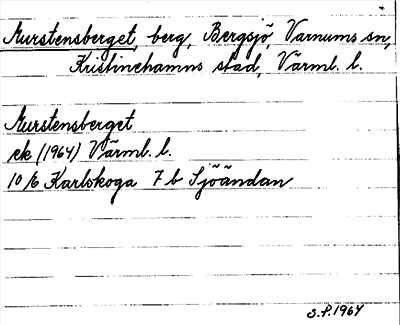 Murstensberget, berg, Bergsjö, Varnums sn,
Kristinehamns stad, Värml. l.
Murstensberget
ek (1964) Värml. l.
10/6 Karlskoga 7 b Sjöändan
S.P. 1964